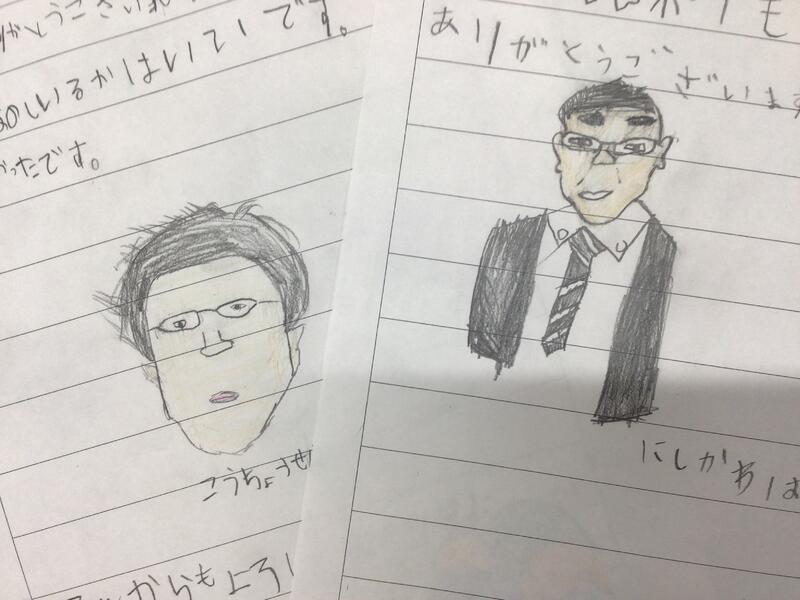 とうございま
のしいるかはいていです。
ったです。
こうちょうせ
からもよろし
も
ありがとうございます
にしかわ